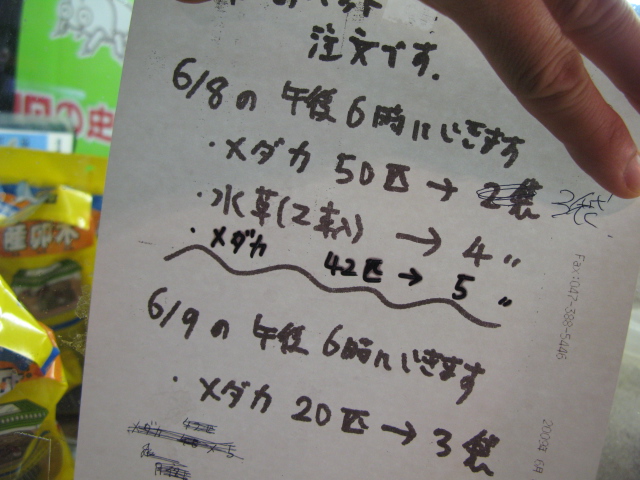 注文です。
6/8の 午後6時にいきます
・メダカ 50匹→ 3袋
・水草(2束入) → 4〃
・メダカ 42匹→ 5〃
6/9の 午後6時にいきます
・メダカ 20匹→3袋
Fax:047-388-5446
産卵木